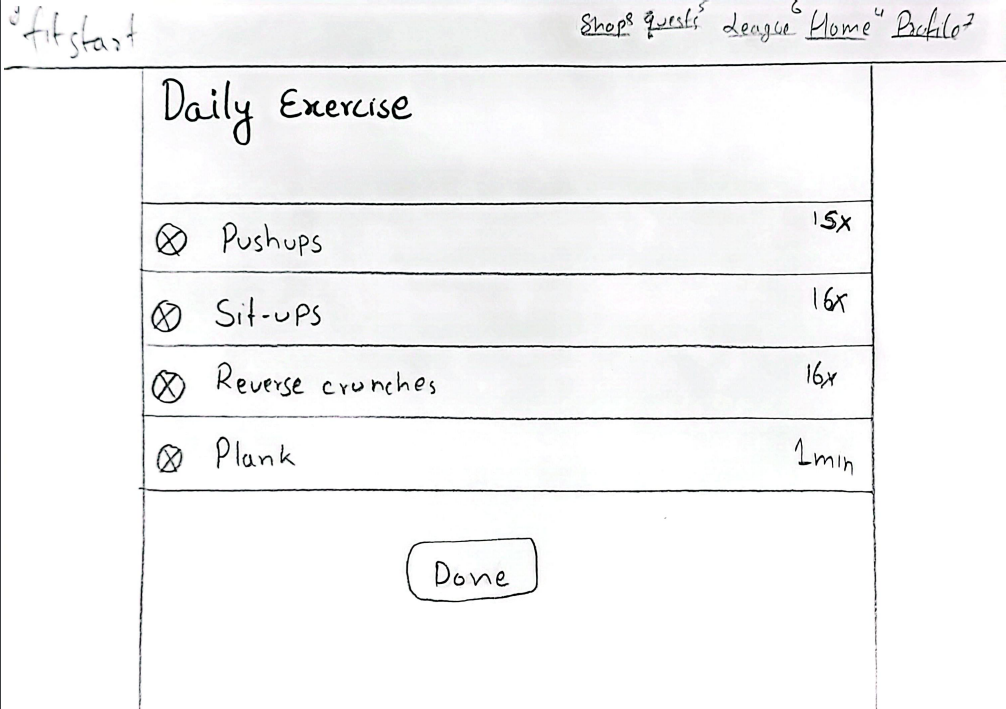 fitstart
Shop⁸ Quests⁵ League⁶ Home⁴ Profile⁷
Daily Exercise
Pushups 15x
Sit-ups 16x
Reverse crunches 16x
Plank 1min
Done